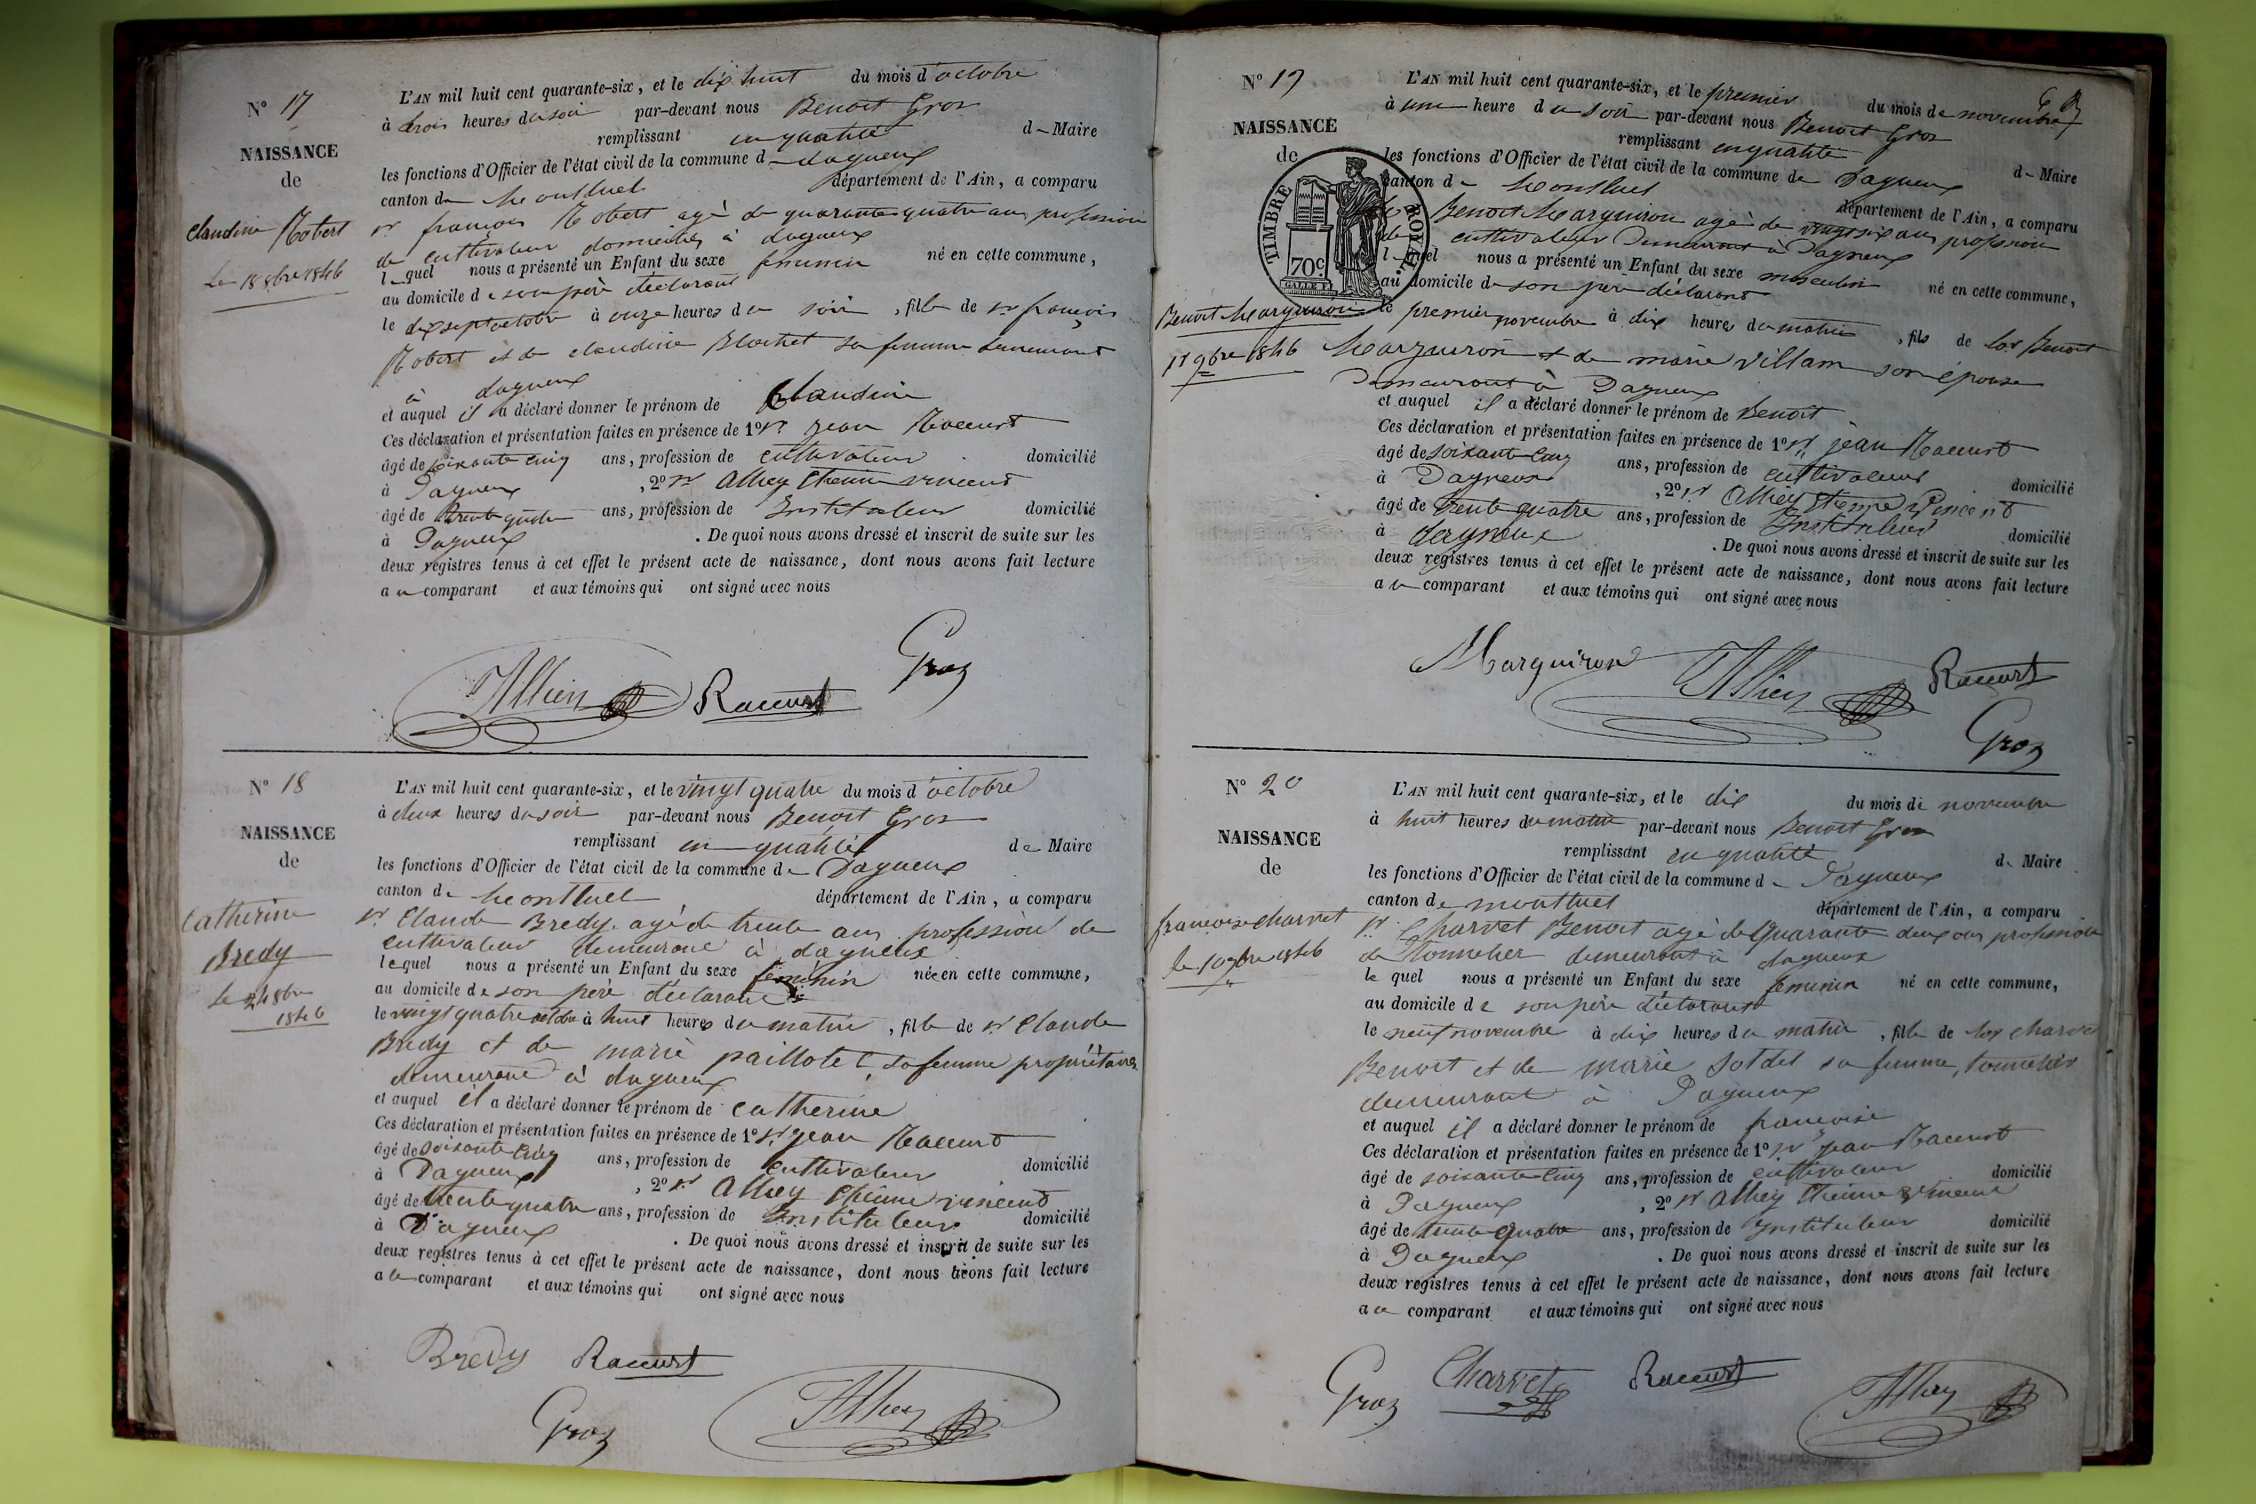 N° 17
NAISSANCE
de
Claudine Robert
Le 18 8bre 1846
L'AN mil huit cent quarante-six, et le dix huit du mois d'octobre
à trois heures du soir par-devant nous Benoit Groz
remplissant en qualité de Maire
les fonctions d'Officier de l'état civil de la commune d dagneux
canton de Montluel département de l'Ain, a comparu
sr françois Robert agé de quarante quatre ans profession
de cultivateur domicilié à dagneux
lequel nous a présenté un Enfant du sexe feminin né en cette commune,
au domicile de son père déclarant
le dix sept octobre à onze heures du soir, fille de sr françois
Robert et de claudine Blochet sa femme demeurant
à dagneux
et auquel il a déclaré donner le prénom de Claudine
Ces déclaration et présentation faites en présence de 1° sr jean Racurt
âgé de soixante cinq ans, profession de cultivateur domicilié
à Dagneux, 2° sr Alhey Etienne vincent
âgé de trente quatre ans, profession de Instituteur domicilié
à Dagneux. De quoi nous avons dressé et inscrit de suite sur les
deux registres tenus à cet effet le présent acte de naissance, dont nous avons fait lecture
au comparant et aux témoins qui ont signé avec nous
Groz
Racurt
N° 18
NAISSANCE
de
Catherine
Bredy
Le 24 8bre
1846
L'AN mil huit cent quarante-six, et le vingt quatre du mois d'octobre
à deux heures du soir par-devant nous Benoit Groz
remplissant en qualité de Maire
les fonctions d'Officier de l'état civil de la commune de Dagneux
canton de Montluel département de l'Ain, a comparu
sr Claude Bredy agé de trente ans profession de
cultivateur demeurant à dagneux
lequel nous a présenté un Enfant du sexe féminin née en cette commune,
au domicile de son père déclarant
le vingt quatre octobre à huit heures du matin, fille de sr Claude
Bredy et de marie paillotet sa femme propriétaires
demeurant à dagneux
et auquel il a déclaré donner le prénom de catherine
Ces déclaration et présentation faites en présence de 1° sr jean Racurt
âgé de soixante cinq ans, profession de cultivateur domicilié
à Dagneux, 2° sr Alhey Etienne vincent
âgé de trente quatre ans, profession de Instituteur domicilié
à Dagneux. De quoi nous avons dressé et inscrit de suite sur les
deux registres tenus à cet effet le présent acte de naissance, dont nous avons fait lecture
au comparant et aux témoins qui ont signé avec nous
Bredy Racurt
Groz Alhey
N° 19
NAISSANCE
de
TIMBRE ROYAL
70c
Benoit Marguiron
1er 9bre 1846
L'AN mil huit cent quarante-six, et le premier du mois de novembre
à une heure du soir par-devant nous Benoit Groz
remplissant en qualité de Maire
les fonctions d'Officier de l'état civil de la commune de Dagneux
canton de Montluel département de l'Ain, a comparu
Benoit Marguiron agé de vingt six ans profession
de cultivateur Demeurant à Dagneux
lequel nous a présenté un Enfant du sexe masculin né en cette commune,
au domicile de son père déclarant
le premier novembre à dix heures du matin, fils de Benoit
Marguiron et de marie Villam son épouse
Demeurant à Dagneux
et auquel il a déclaré donner le prénom de Benoit
Ces déclaration et présentation faites en présence de 1° sr jean Racurt
âgé de soixante cinq ans, profession de cultivateur domicilié
à Dagneux, 2° sr Alhey Etienne Vincent
âgé de trente quatre ans, profession de Instituteur domicilié
à dagneux. De quoi nous avons dressé et inscrit de suite sur les
deux registres tenus à cet effet le présent acte de naissance, dont nous avons fait lecture
au comparant et aux témoins qui ont signé avec nous
Marguiron Alhey Racurt
Groz
N° 20
NAISSANCE
de
francoise charvet
le 10 9bre 1846
L'AN mil huit cent quarante-six, et le dix du mois de novembre
à huit heures du matin par-devant nous Benoit Groz
remplissant en qualité de Maire
les fonctions d'Officier de l'état civil de la commune de Dagneux
canton de montluel département de l'Ain, a comparu
sr Charvet Benoit agé de quarante deux ans profession
de Tonnelier demeurant à dagneux
lequel nous a présenté un Enfant du sexe feminin né en cette commune,
au domicile de son père déclarant
le neuf novembre à dix heures du matin, fille de charvet
Benoit et de marie Sotdet sa femme, tonnelier
demeurant à Dagneux
et auquel il a déclaré donner le prénom de francoise
Ces déclaration et présentation faites en présence de 1° sr jean Racurt
âgé de soixante cinq ans, profession de cultivateur domicilié
à Dagneux, 2° sr Alhey Etienne Vincent
âgé de trente quatre ans, profession de Instituteur domicilié
à Dagneux. De quoi nous avons dressé et inscrit de suite sur les
deux registres tenus à cet effet le présent acte de naissance, dont nous avons fait lecture
au comparant et aux témoins qui ont signé avec nous
Groz Charvet Racurt Alhey